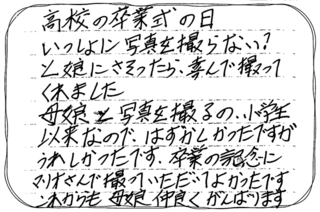 高校の卒業式の日
いっしょに写真を撮らない?
と娘にさそったら、喜んで撮って
くれました
母娘と写真を撮るの、小学生
以来なので、はずかしかったですが
うれしかったです、卒業の記念に
マリオさんで撮っていただいてよかったです
これからも母娘仲良くがんばります